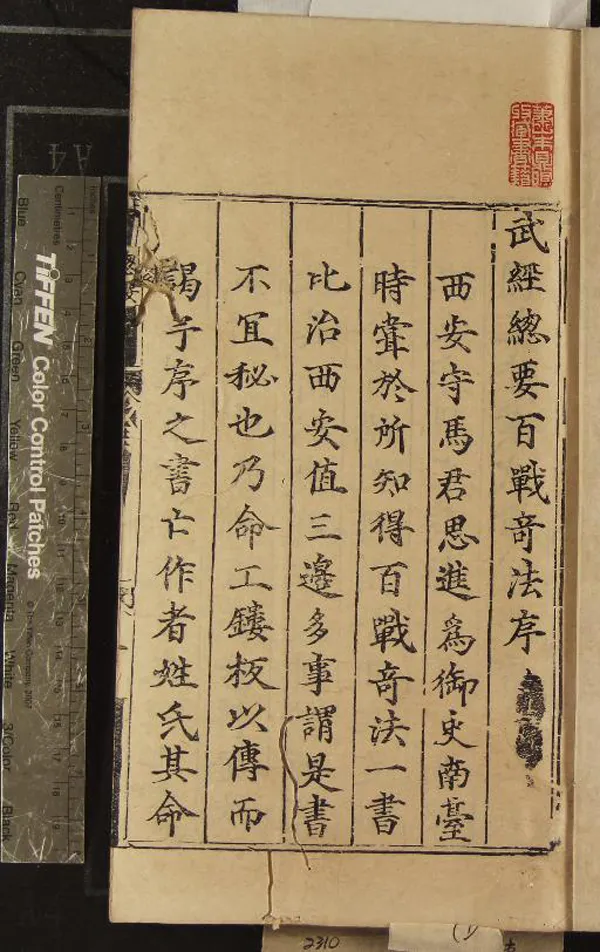 武經總要百戰奇法序
西安守馬君思進爲御史南臺
時嘗於所知得百戰奇法一書
比治西安值三邊多事謂是書
不宜秘也乃命工鏤板以傳而
謁予序之書亡作者姓氏其命
A4
Inches
Centimetres
TIFFEN Color Control Patches
© The Tiffen Company, 2007
Blue
Cyan
Green
Yellow
Red
Magenta
White
3/Color
Black
2310